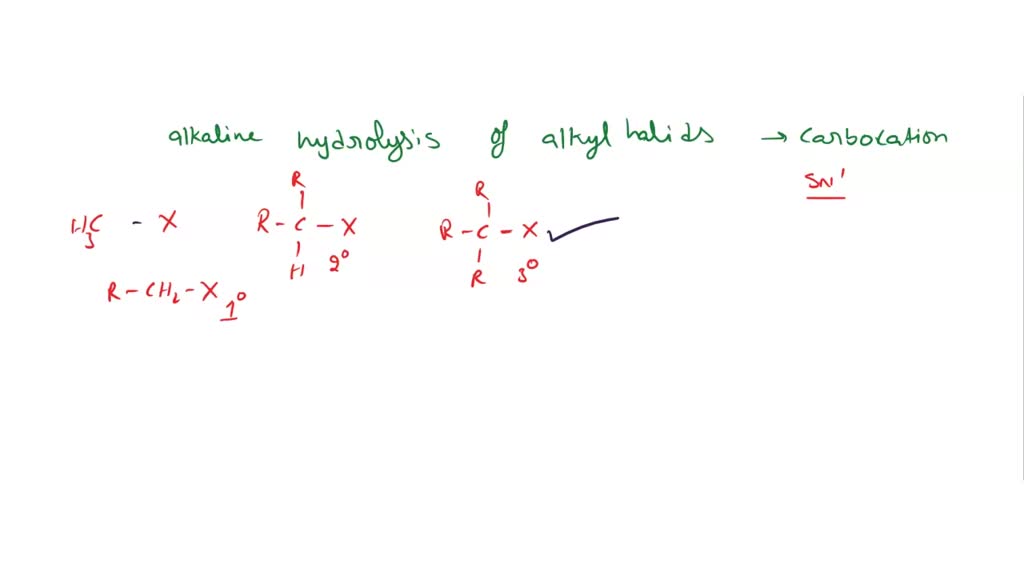 alkaline hydrolysis of alkyl halids → carbocation
SN'
H3C - X
R
R - C - X
H 2°
R
R - C - X
R 3°
R - CH2 - X 1°